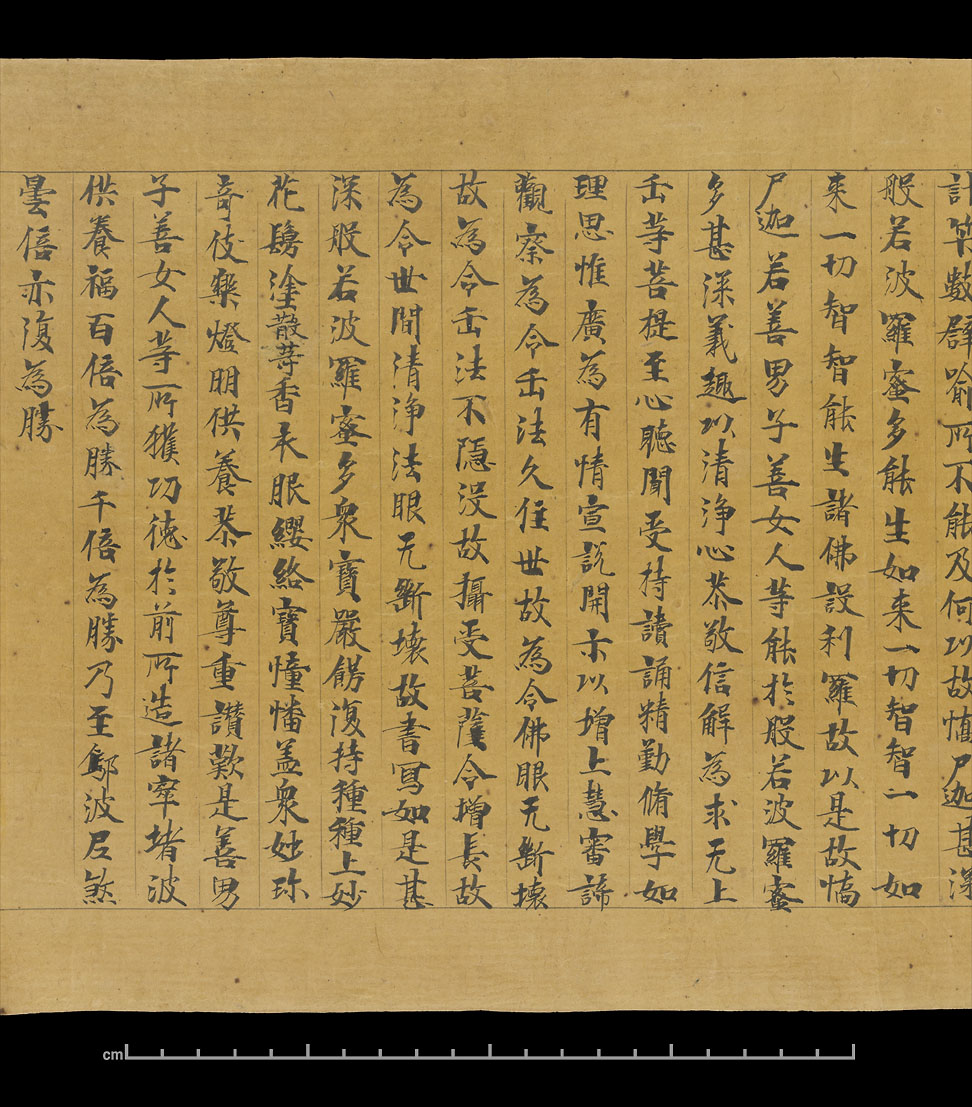 計筭數譬喻所不能及何以故憍尸迦甚深
般若波羅蜜多能生如来一切智智一切如
来一切智智能生諸佛設利羅故以是故憍
尸迦若善男子善女人等能於般若波羅蜜
多甚深義趣以清淨心恭敬信解為求无上
正等菩提至心聽聞受持讀誦精勤脩學如
理思惟廣為有情宣說開示以增上慧審諦
觀察為令正法久住世故為令佛眼无斷壞
故為令正法不隱没故攝受菩薩令增長故
為令世間清淨法眼无斷壞故書寫如是甚
深般若波羅蜜多衆寶嚴餝復持種種上妙
花鬘塗散等香衣服纓絡寶幢幡盖衆妙珎
竒伎樂燈明供養恭敬尊重讃歎是善男
子善女人等所獲功德於前所造諸窣堵波
供養福百倍為勝千倍為勝乃至鄔波尼煞
曇倍亦復為勝